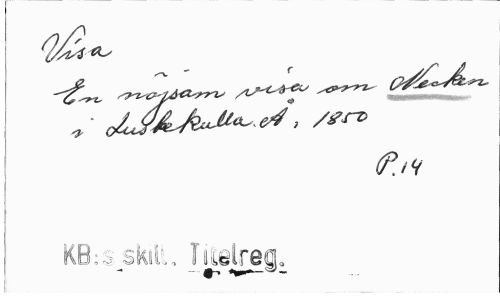 Visa
En nöjsam visa om Necken
i Luskekulla Å, 1850
P.14
KB:s skill. Titelreg.